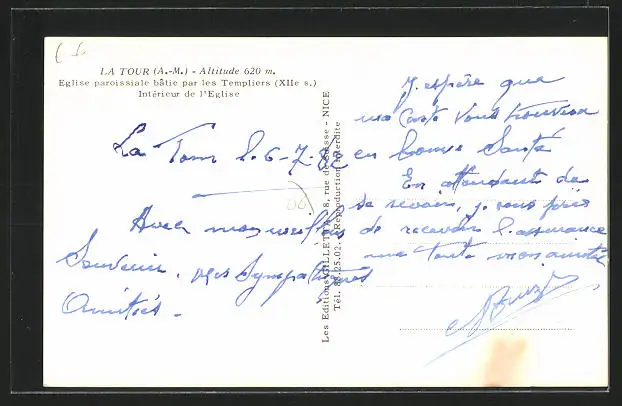 LA TOUR (A.-M.) - Altitude 620 m.
Eglise paroissiale bâtie par les Templiers (XIIe s.)
Intérieur de l'Eglise
La Tour 6-7-82
Avec mes meilleurs
Souvenirs. mes Sympathiques
Amitiés.
J'espère que
ma Carte Vous trouvera
en bonne Santé
En attendant de
se revoir, je vous prie
de recevoir l'assurance
de toute mon amitié
Les Editions GILLETTA, rue - NICE
Tél. Reproduction interdite